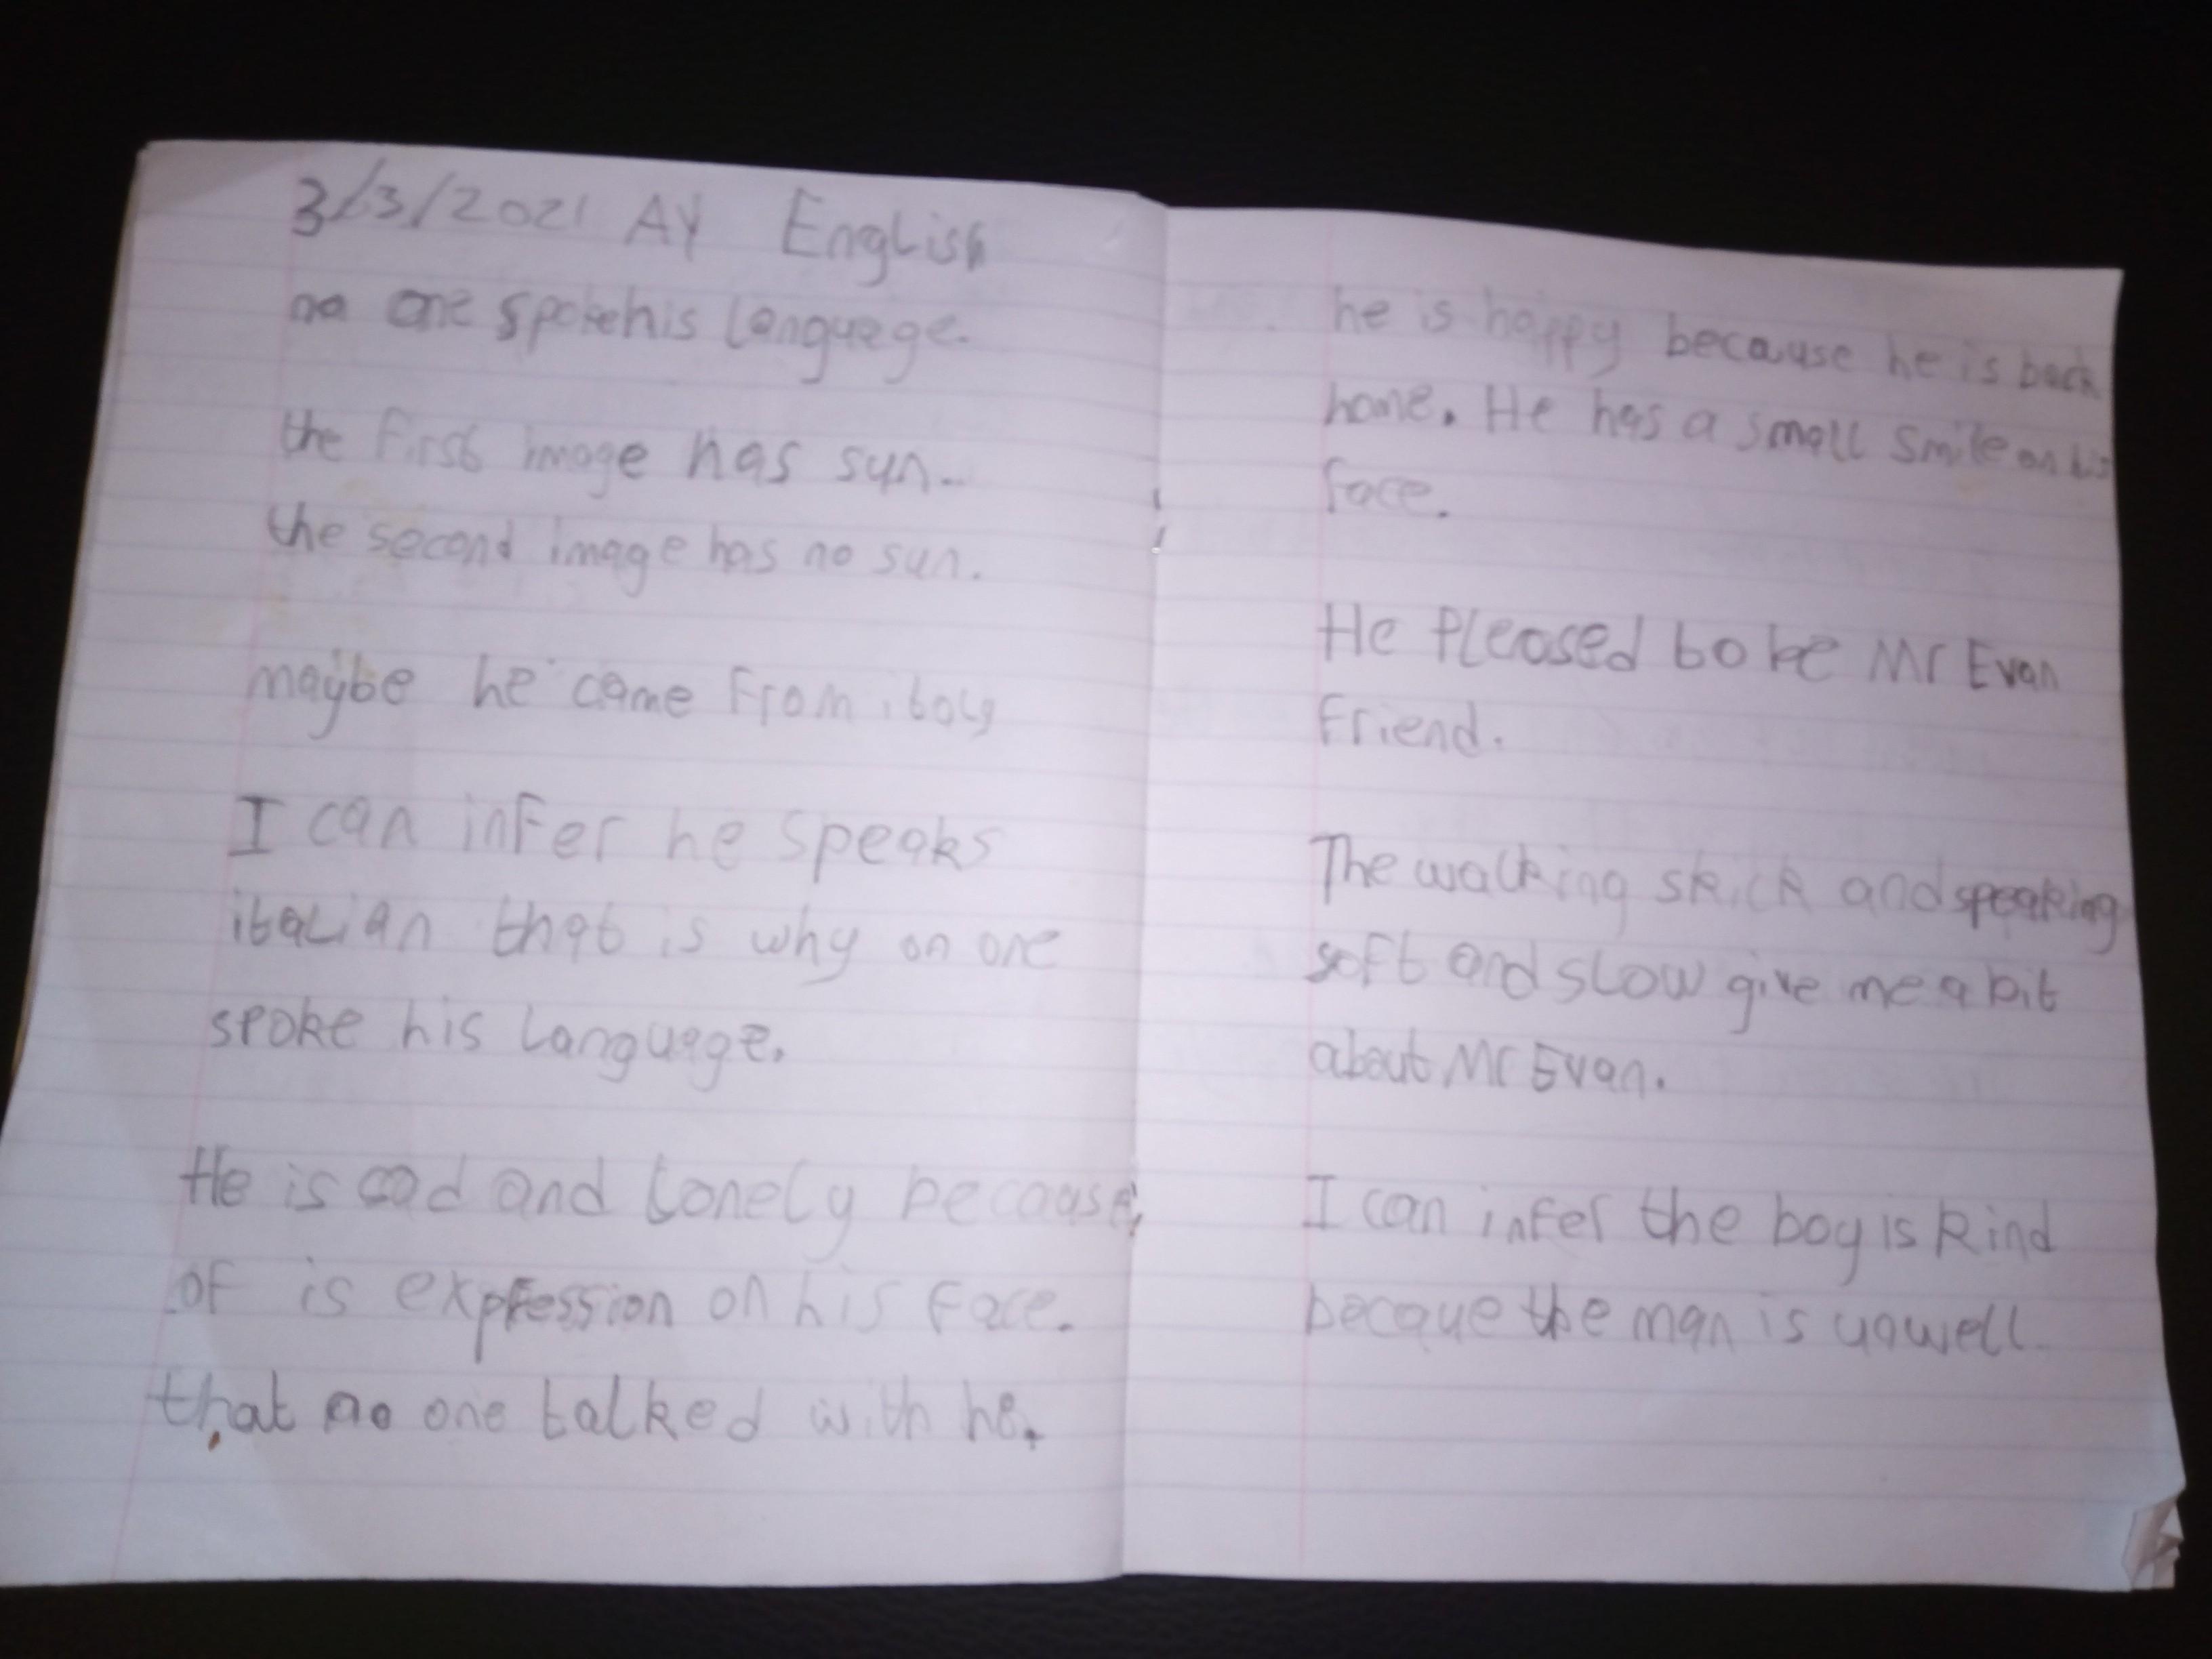 3/3/2021 AY English
no one spoke his language.
the first image has sun..
the second image has no sun.
maybe he came from italy
I can infer he speaks
italian that is why on one
spoke his language.
He is sad and lonely because
of is expression on his face.
that no one talked with he.
he is happy because he is back
home. He has a small smile on his
face.
He Pleased to be Mr Evan
Friend.
The walking skick and speaking
soft and slow give me a bit
about Mr Evan.
I can infer the boy is kind
becaque the man is unwell.